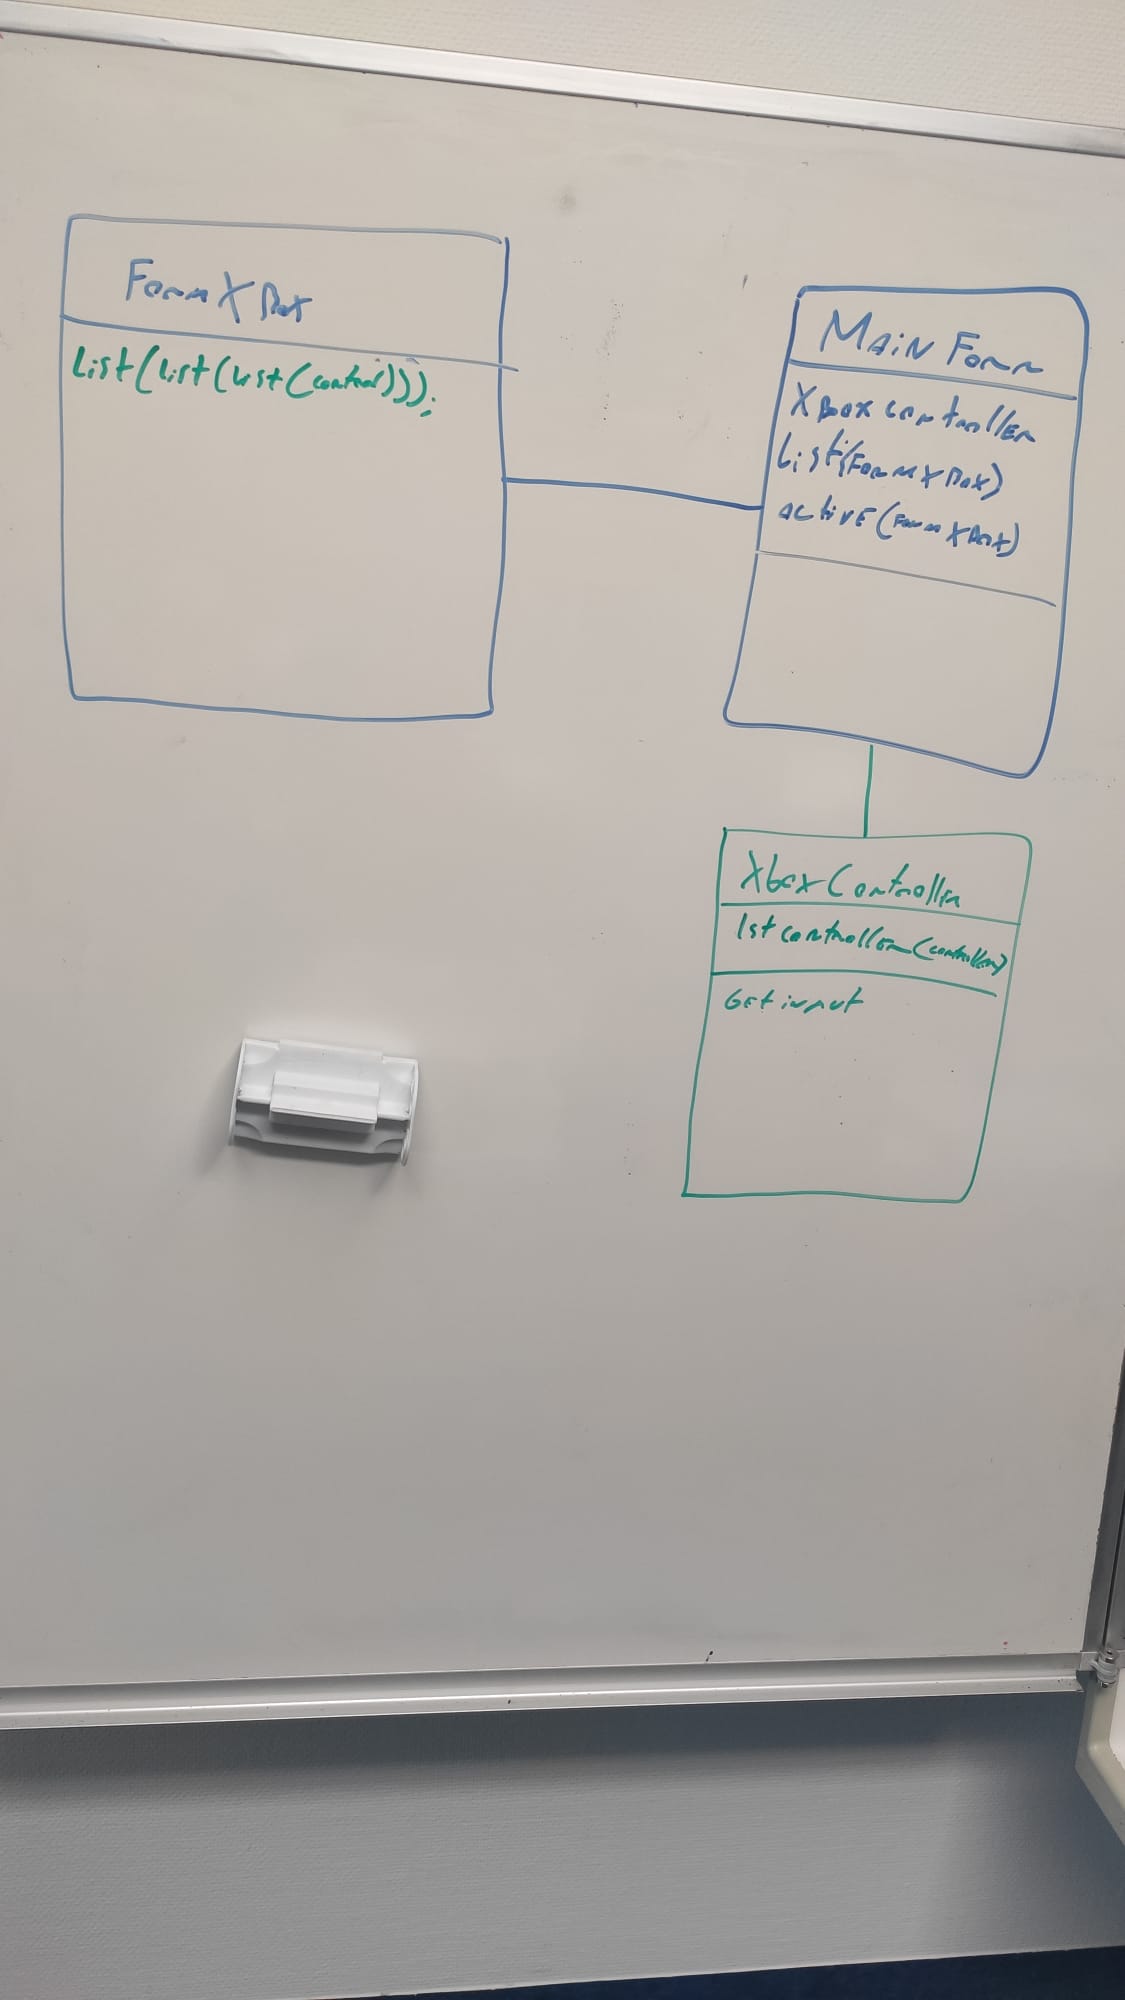 Form XBox
List(List(List(control)));
MAIN Form
XBox controller
List(Form XBox)
active(Form XBox)
XboxController
1st controller(controller)
Get input